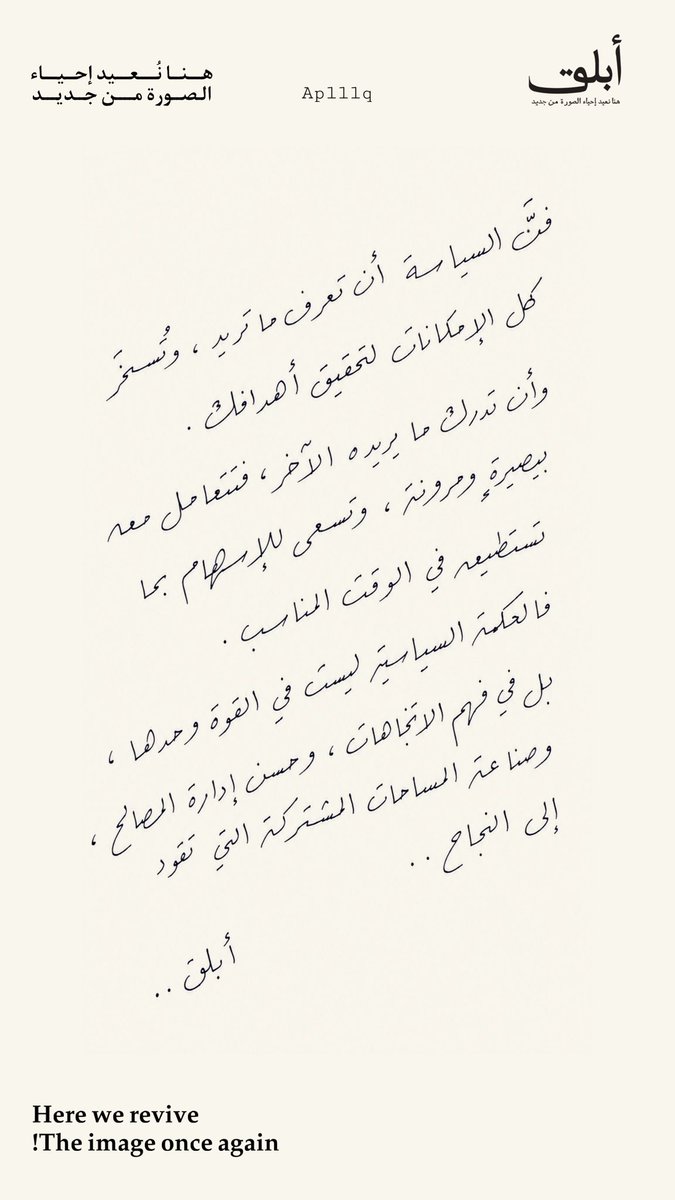 أبلق
هنا نعيد إحياء الصورة من جديد
Aplllq
هنا نُعيد إحياء
الصورة من جديد
فنَّ السياسة أن تعرف ما تريد ، وتُسخَّر
كل الإمكانات لتحقيق أهدافك .
وأن تدرك ما يريده الآخر ، فتتعامل معه
ببصيرةٍ ومرونة ، وتسعى للإسهام بما
تستطيعه في الوقت المناسب .
فالحكمة السياسية ليست في القوة وحدها ،
بل في فهم الاتجاهات ، وحسن إدارة المصالح ،
وصناعة المساحات المشتركة التي تقود
إلى النجاح ..
أبلق ..
Here we revive
!The image once again